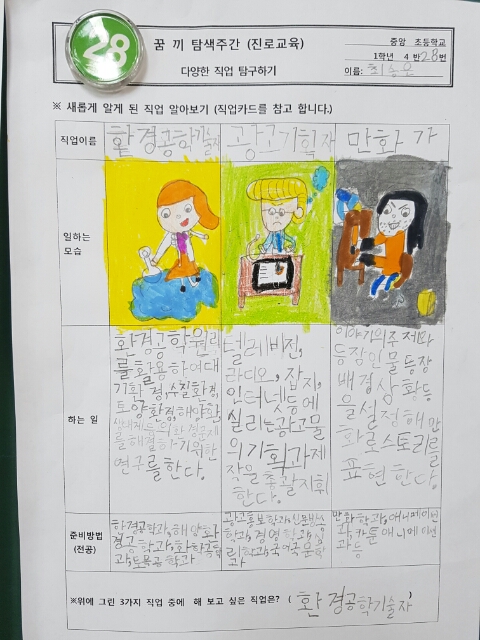 28
꿈 끼 탐색주간 (진로교육)
다양한 직업 탐구하기
중앙 초등학교
1학년 4 반 28번
이름: 최승호
※ 새롭게 알게 된 직업 알아보기 (직업카드를 참고 합니다.)
직업이름
환경공학기술자
광고기획자
만화가
일하는
모습
하는 일
환경공학원리
를 활용하여대
기환경,수질환경,
토양환경,해양환
를 해결하기위한
연구를한다.
텔레비전,
라디오, 잡지,
인터넷등에
실리는광고물
의기획과제
작을 총괄지휘
한다.
이야기의주제와
등장인물등장
배경상황등
을설정해만
화로스토리를
표현한다.
준비방법
(전공)
환경공학과,해양환
경공학과,화학공학
과,토목공학과
광고홍보학과,신문방송
학과,경영학과,심
리학과,국어국문학
과
만화학과,애니메이션
과,카툰애니메이션
과등
※위에 그린 3가지 직업 중에 해 보고 싶은 직업은? ( 환경공학기술자 )